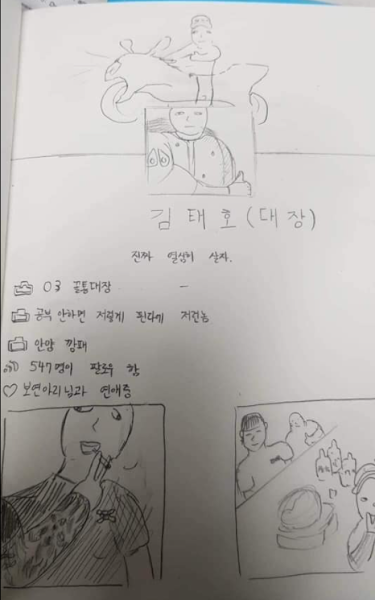 김태호(대장)
진짜 열심히 살자.
03 꼴통대장
공부 안하면 저렇게 된다기 저런놈
안암 깡패
547명이 팔로우 함
보연아리님과 연애중